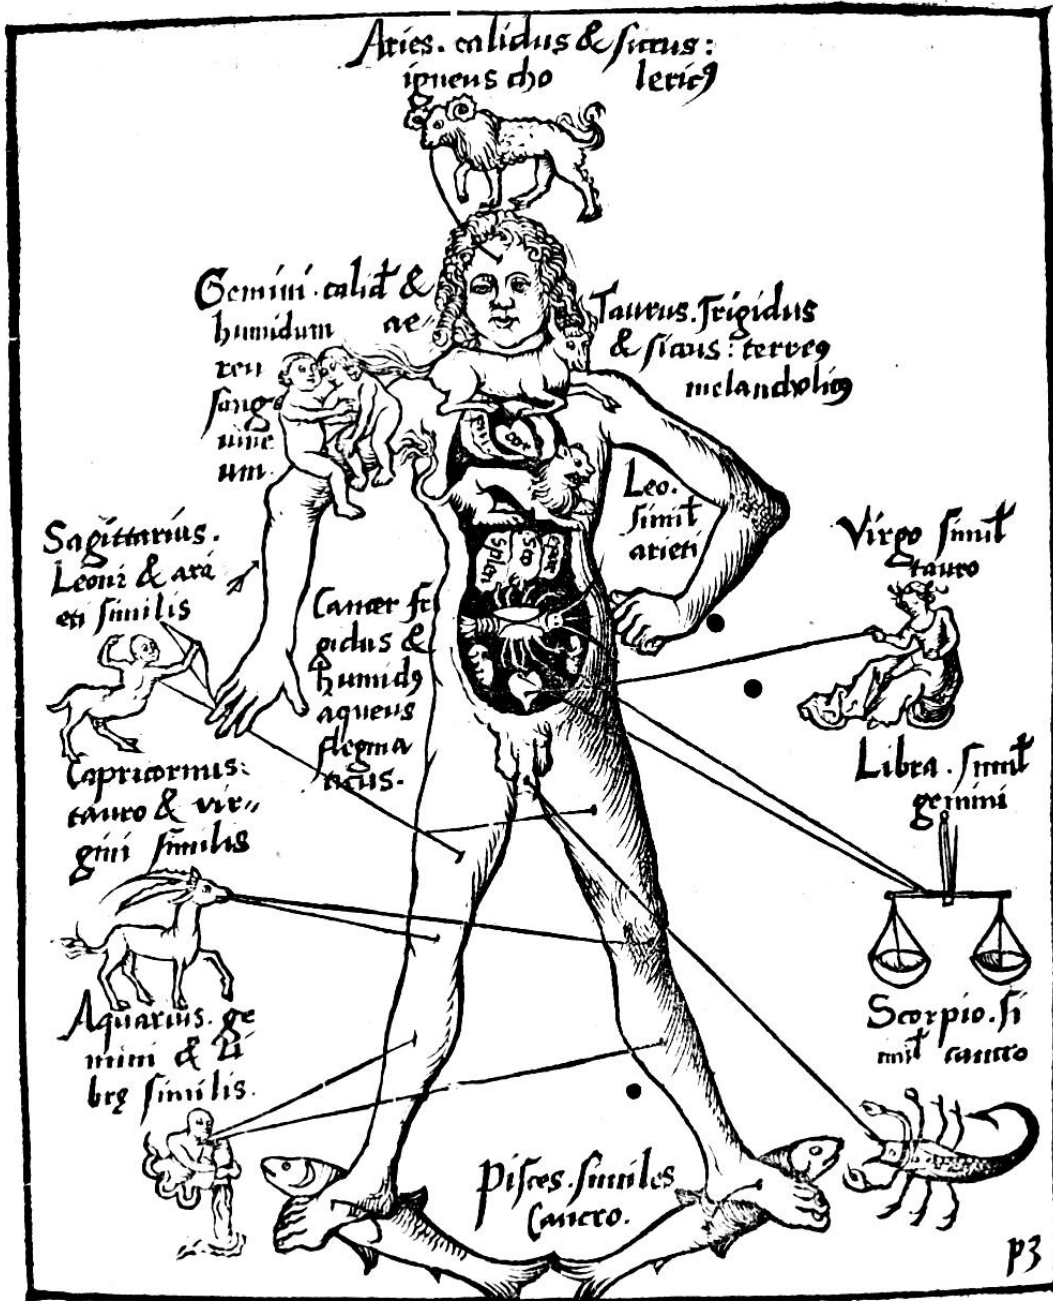 Aries. calidus & siccus:
igneus cho lericꝰ
Gemini. calid &
humidum ae
reu
sang
uine
um.
Taurus. Frigidus
& siccus: terreꝰ
melancholicꝰ
cor
Leo.
simil
arieti
Sagittarius.
Leoni & ari
eti similis
splen
Cancer fri
gidus &
humidꝰ
aqueus
flegma
ticus.
Virgo simil
tauro
Capricornus:
tauro & vir//
gini similis
Libra. simil
gemini
Aquarius. ge
mini & li
brę similis.
Scorpio. si
mil cancro
Pisces. similes
Cancro.
p3